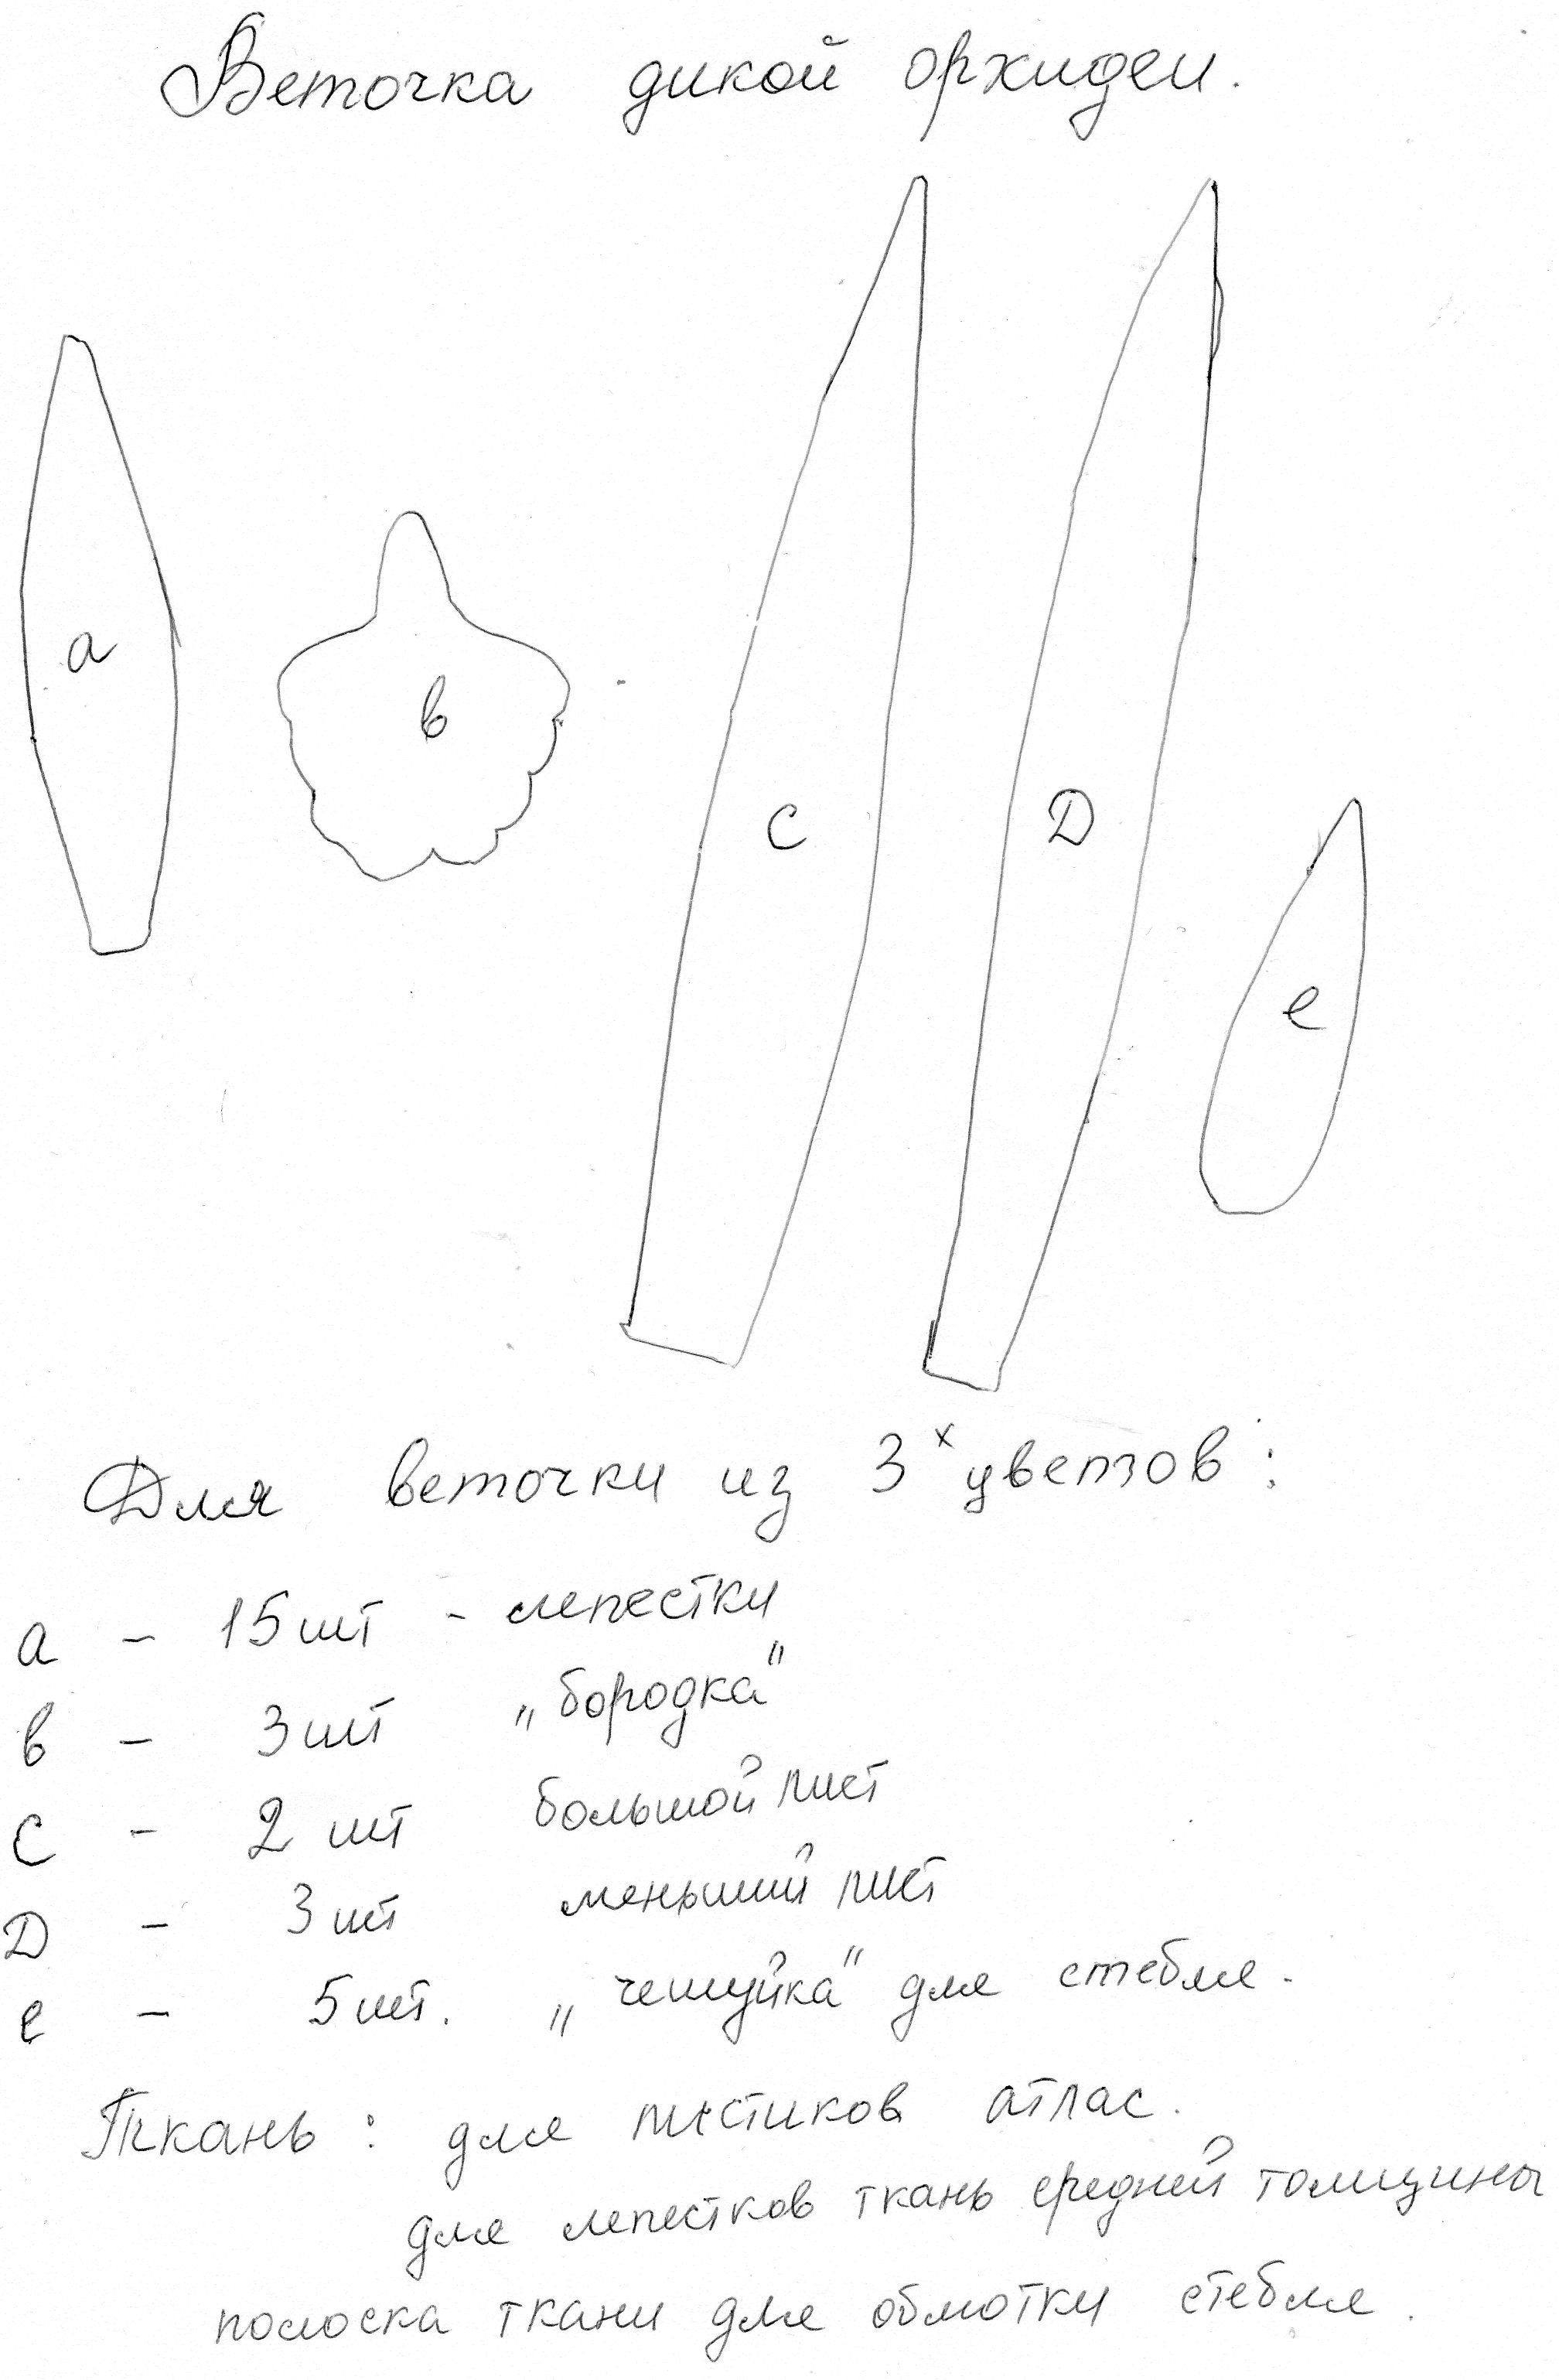 Веточка дикой орхидеи.
а
в
С
D
е
Для веточки из 3х цветов:
а - 15 шт - лепестки
в - 3 шт „бородка"
С - 2 шт большой лист
D - 3 шт меньший лист
е - 5 шт. „чешуйка" для стебля.
Ткань: для листиков атлас.
для лепестков ткань средней толщины
полоска ткани для обмотки стебля.